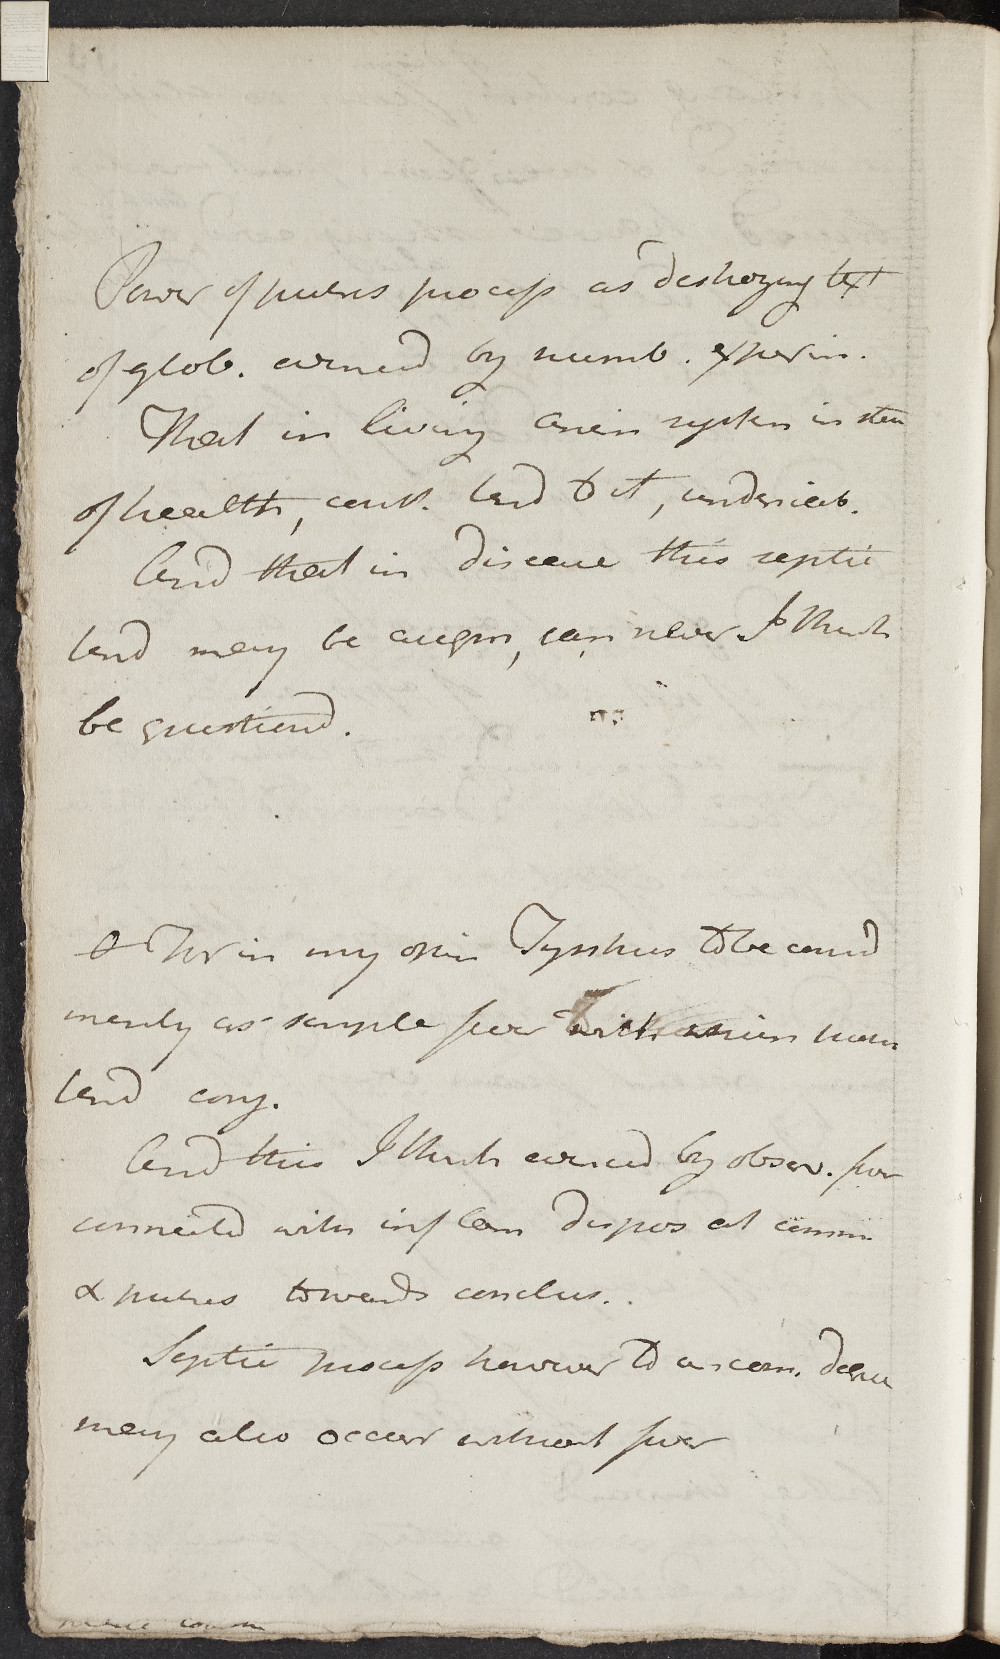 Power of putres process as destroying text
of glob. evinced by numb. experim.
That in living anim system in state
of health, const. tend to it, undeniab.
And that in disease this septic
tend may be augm, can never I think
be questiond.
& Thus in my opin Typhus to be consid
merely as simple fever with
tend cong.
And this I think evinced by observ. fever
connected with inflam dispos at comm
& putres towards conclus.
Septic process however to a certn. degree
may also occur without fever